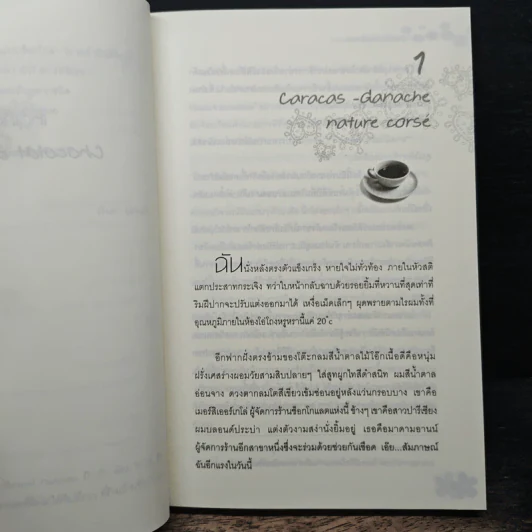 1
Caracas -Ganache
nature corsé
ฉันนั่งหลังตรงตัวแข็งเกร็ง หายใจไม่ทั่วท้อง ภายในหัวสติ
แตกประสาทกระเจิง ทว่าใบหน้ากลับฉาบด้วยรอยยิ้มที่หวานที่สุดเท่าที่
ริมฝีปากจะปรับแต่งออกมาได้ เหงื่อเม็ดเล็กๆ ผุดพรายตามไรผมทั้งที่
อุณหภูมิภายในห้องโอ่โถงหรูหรานี้แค่ 20˚c
อีกฟากฝั่งตรงข้ามของโต๊ะกลมสีน้ำตาลไม้โอ๊กเนื้อดีคือหนุ่ม
ฝรั่งเศสร่างผอมวัยสามสิบปลายๆ ใส่สูทผูกไทสีดำสนิท ผมสีน้ำตาล
อ่อนจาง ดวงตากลมโตสีเขียวเข้มซ่อนอยู่หลังแว่นกรอบบาง เขาคือ
เมอร์สิเออร์เกโล่ ผู้จัดการร้านช็อกโกแลตแห่งนี้ ข้างๆ เขาคือสาวปารีเซียง
ผมบลอนด์ประบ่า แต่งตัวงามสง่านั่งยิ้มอยู่ เธอคือมาดามอานน์
ผู้จัดการร้านอีกสาขาหนึ่งซึ่งจะร่วมด้วยช่วยกันเชือด เอ๊ย...สัมภาษณ์
ฉันอีกแรงในวันนี้